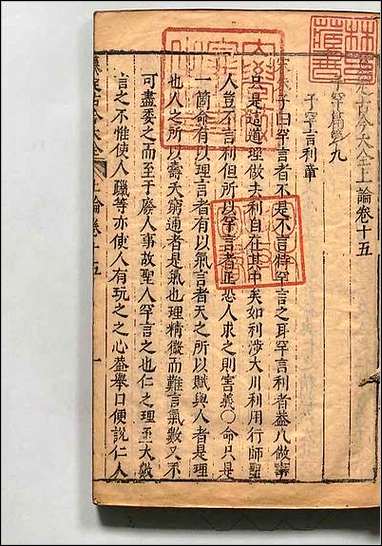 古今大全上論卷十五
子罕篇第九
子罕言利章
子曰罕言者不是不言特罕言之耳罕言利者蓋凡做事
只是這道理做去利自在其中矣如利涉大川利用行師聖
人豈不言利但所以罕言者正恐人求之則害義〇命只是
一箇命有以理言者有以氣言者天之所以賦與人者是理
也人之所以壽夭窮通者是氣也理精微而難言氣數又不
可盡委之而至于廢人事故聖人罕言之也仁之理至大數
言之不惟使人躐等亦使人有玩之之心蓋舉口便說仁人
古今大全
上論卷十五
一